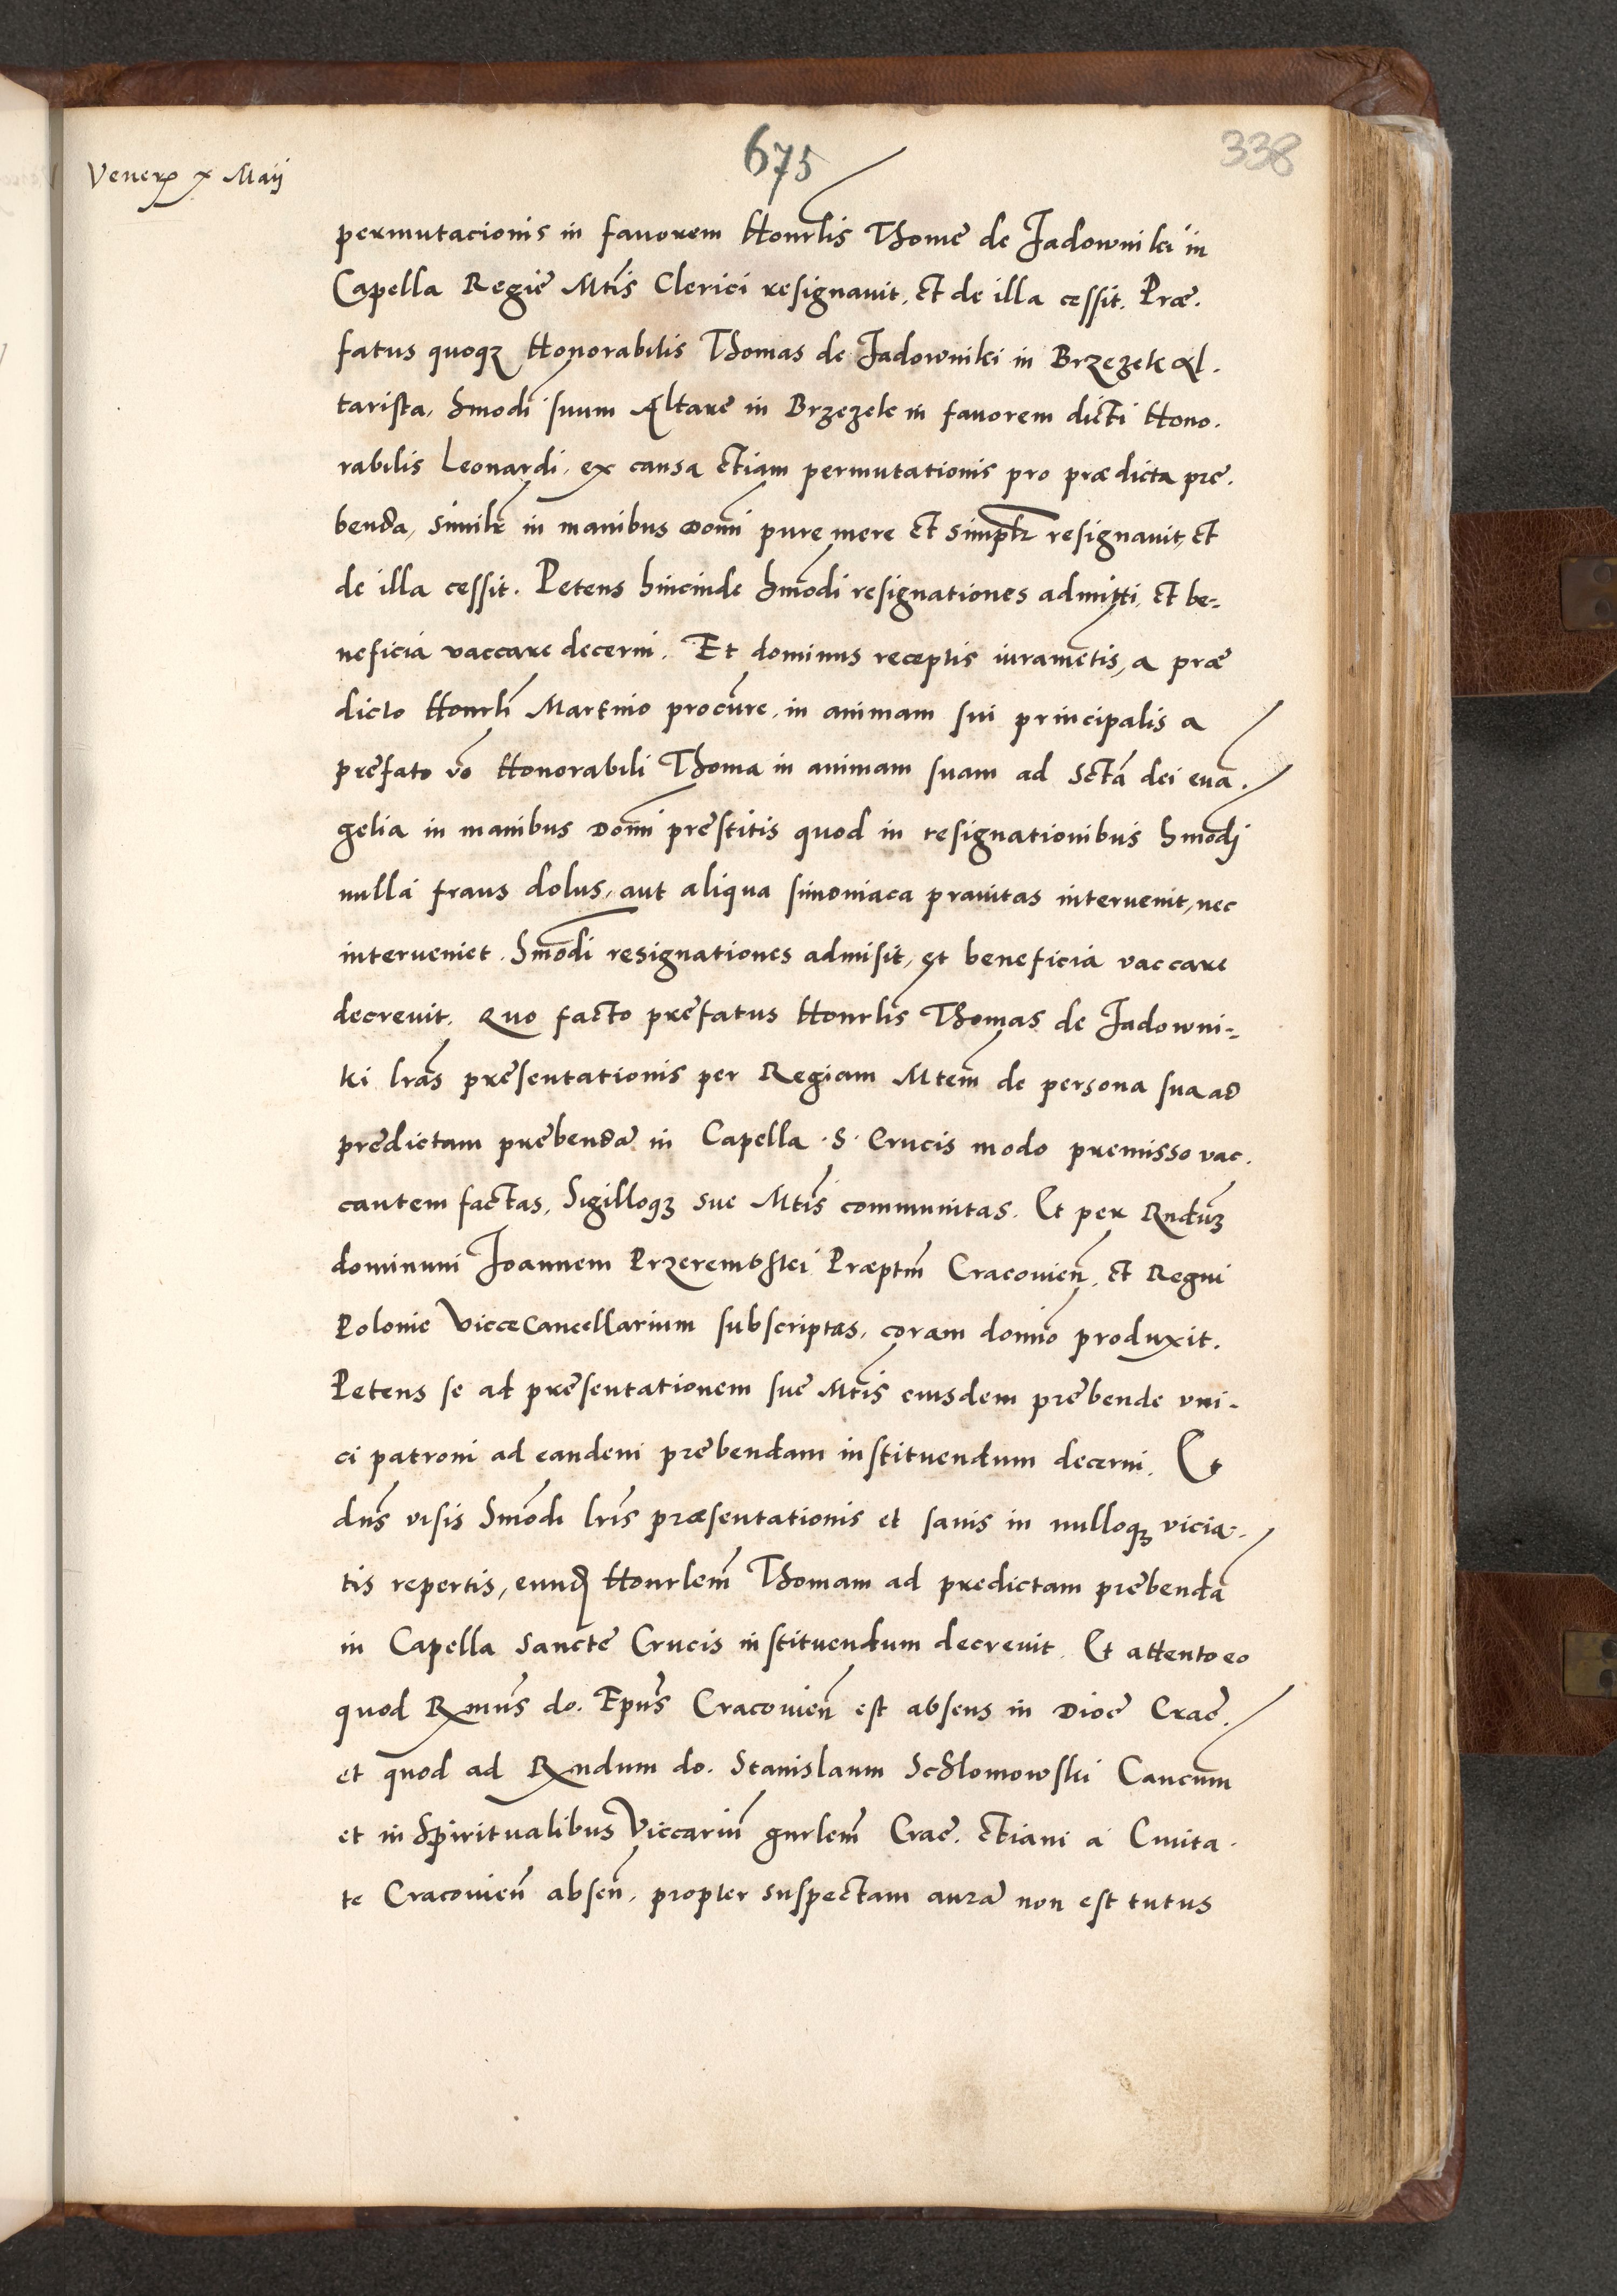 675
338
Vener̃ x Maij
permutacionis in fauorem Honrlis Thome de Jadowniki in
Capella Regie Mtis Clerici resignauit, et de illa cessit. Præ.
fatus quoqȝ Honorabilis Thomas de Jadowniki in Brzezek Al.
tarista, hmodi suum Altare in Brzezek in fauorem dicti Hono.
rabilis Leonardi, ex causa etiam permutationis pro prædicta pre.
benda, similr in manibus domi pure mere et simplr resignauit, et
de illa cessit. Petens hincinde hmodi resignationes admitti, et be-
neficia vaccare decerni. Et dominus receptis iurametis, a præ
dicto Honrli Martino procure, in animam sui principalis a
prefato vo Honorabili Thoma in animam suam ad Scta dei eua.
gelia in manibus Domi prestitis quod in resignationibus hmodj
nulla fraus dolus, aut aliqua simoniaca prauitas interuenit, nec
interueniet. Hmodi resignationes admisit, et beneficia vaccare
decreuit. Quo facto prefatus Honrlis Thomas de Jadowni-
ki lras presentationis per Regiam Mtem de persona sua ad
predictam prebendã in Capella .S. Crucis modo premisso vac.
cantem factas, Sigilloqȝ sue Mtis communitas. Et per Rndum
dominum Joannem Przerembski Præptm Cracouien̄, et Regni
Polonie ViceCancellarium subscriptas, coram domino produxit.
Petens se ad presentationem sue Mtis eiusdem prebende vni-
ci patroni ad eandem prebendam instituendum decerni. Et
dns visis hmodi lris præsentationis et sanis in nulloqȝ vicia-
tis repertis, eund Honrlem Thomam ad predictam prebendã
in Capella Sancte Crucis instituendum decreuit. Et attento eo
quod Rmus do. Epus Cracouien̄ est absens in Dioc Crac.
et quod ad Rndum do. Stanislaum Schlomowski Cancum
et in Spiritualibus Viccarium gnrlem Crac. etiam a Ciuita.
te Cracouien̄ absen̄, propter suspectam aurã non est tutus